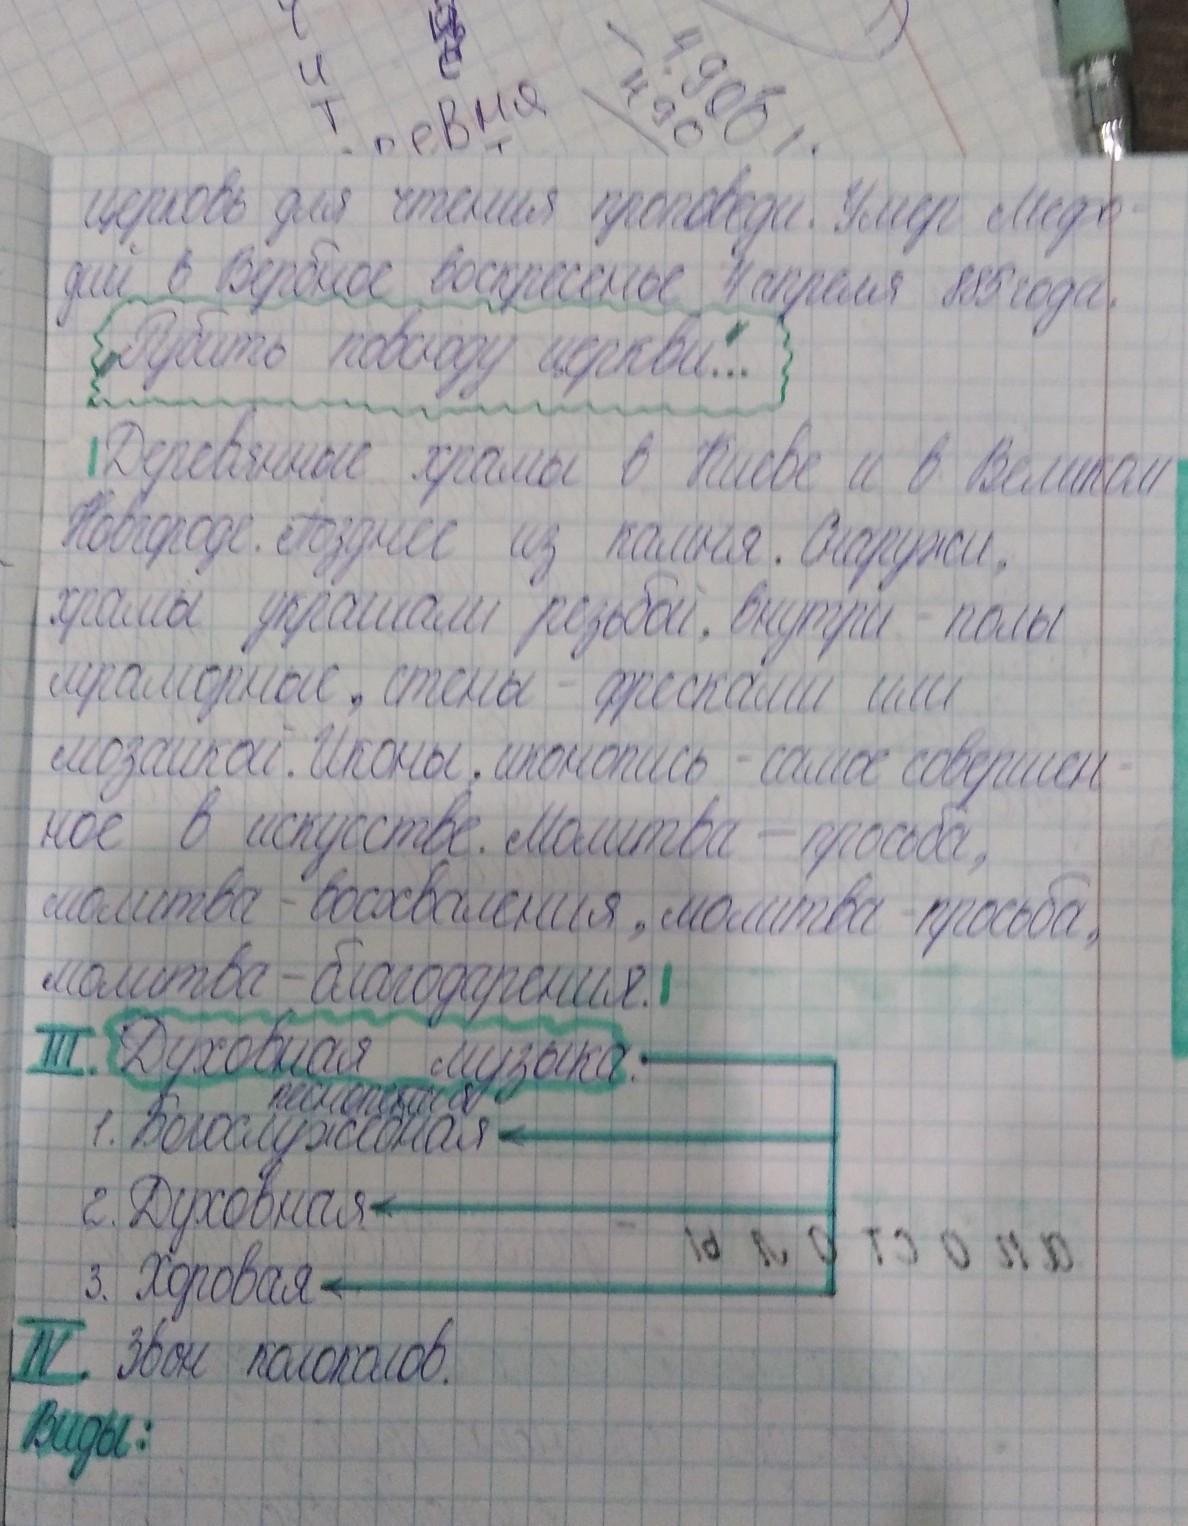 ч
и
т
ревня
4.906
490
церковь для чтения проповеди. Умер Мефо-
дий в Вербное воскресенье 4 апреля 885 года.
"Рубить повсюду церкви"...
Деревянные храмы в Киеве и в Великом
Новгороде. Позднее из камня. Снаружи,
храмы украшали резьбой, внутри - полы
мраморные, стены - фресками или
мозаикой. Иконы, иконопись - самое совершен-
ное в искусстве. Молитва - просьба,
молитва - восхваления, молитва - просьба,
молитва - благодарения.
III. Духовная музыка:
песнопения
1. Богослужебная
2. Духовная
апостолы
3. Хоровая
IV. Звон колоколов.
Виды: